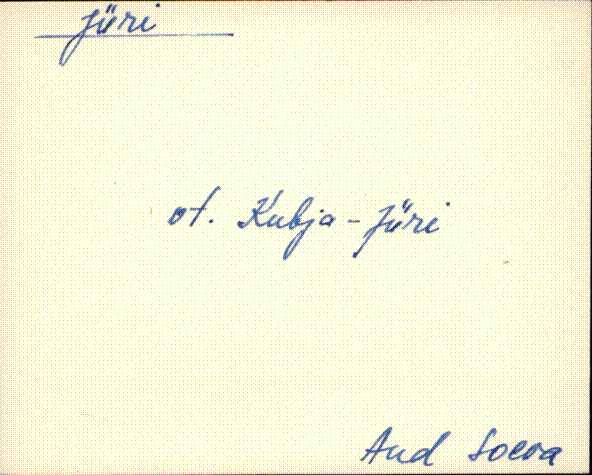 Jüri
vt. Kubja-Jüri
Aud Soeva